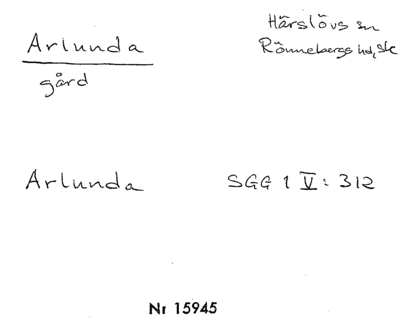 Arlunda
gård
Härslövs sn
Rönnebergs hd, Sk
Arlunda SGG 1 V: 312
Nr 15945